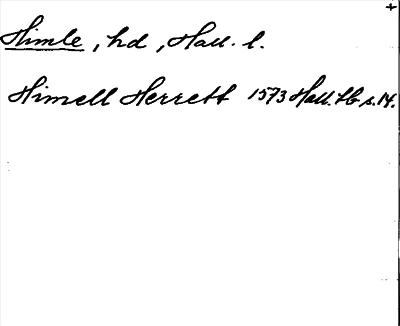 Himle, hd, Hall. l.
Himell Herrett 1573 Hall. hb s. 14.